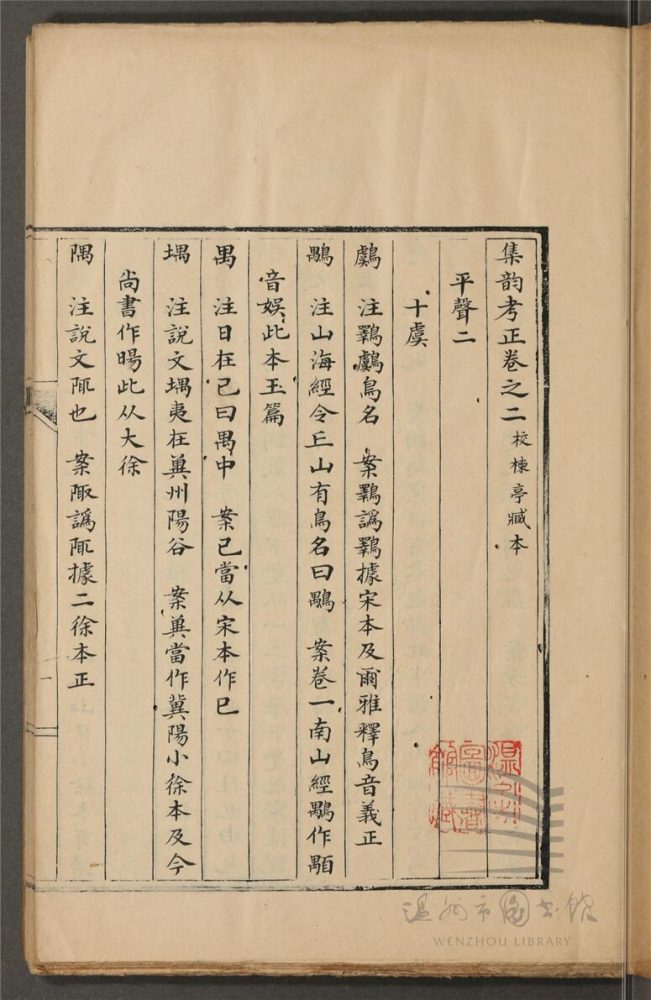 集韵考正卷之二 校楝亭臧本
平聲二
十虞
鸆 注鸅鸆鳥名 案鸅譌鸅據宋本及爾雅釋鳥音義正
鷠 注山海經令丘山有鳥名曰鷠 案卷一南山經鷠作顒
音娱此本玉篇
禺 注日在己曰禺中 案己當从宋本作巳
堣 注說文堣夷在兾州陽谷 案兾當作冀陽小徐本及今
尚書作暘此从大徐
隅 注說文陬也 案陬譌陬據二徐本正
温州市圖書館
WENZHOU LIBRARY